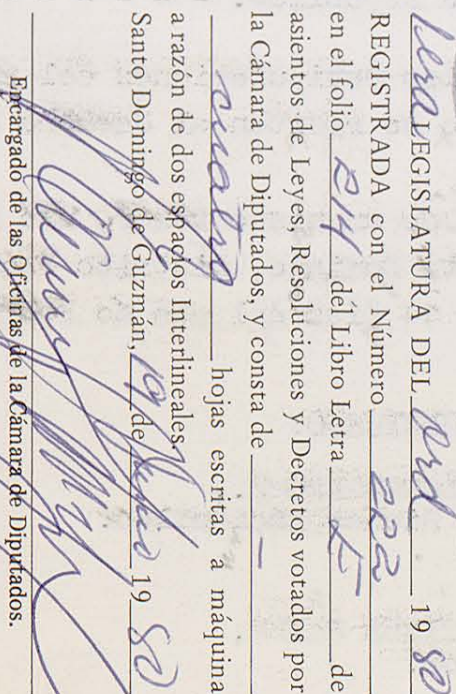 1era LEGISLATURA DEL Ord 1980
REGISTRADA con el Número 222
en el folio 214 del Libro Letra L de
asientos de Leyes, Resoluciones y Decretos votados por
la Cámara de Diputados, y consta de
cuatro hojas escritas a máquina
a razón de dos espacios Interlineales.
Santo Domingo de Guzmán, 19 de 1980
Encargado de las Oficinas de la Cámara de Diputados.